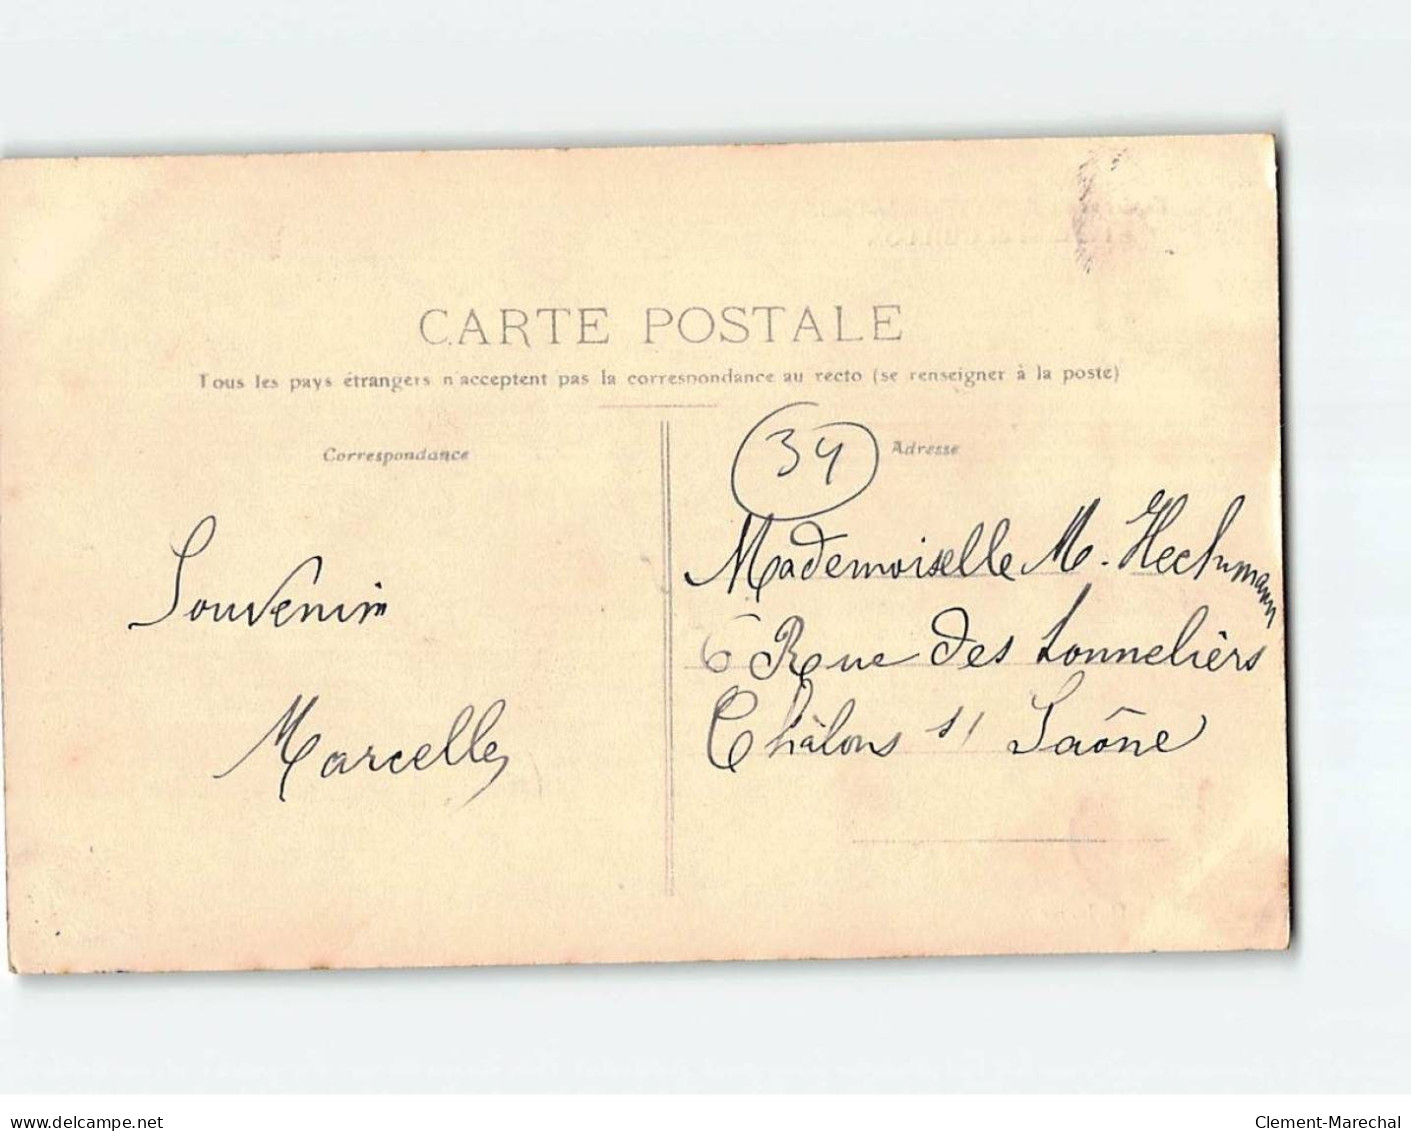 CARTE POSTALE
Tous les pays étrangers n'acceptent pas la correspondance au recto (se renseigner à la poste)
Correspondance
Adresse
34
Souvenir
Marcelle
Mademoiselle M. Hechmann
6 Rue des Tonneliers
Châlons s/ Saône
delcampe.net
Clement-Marechal